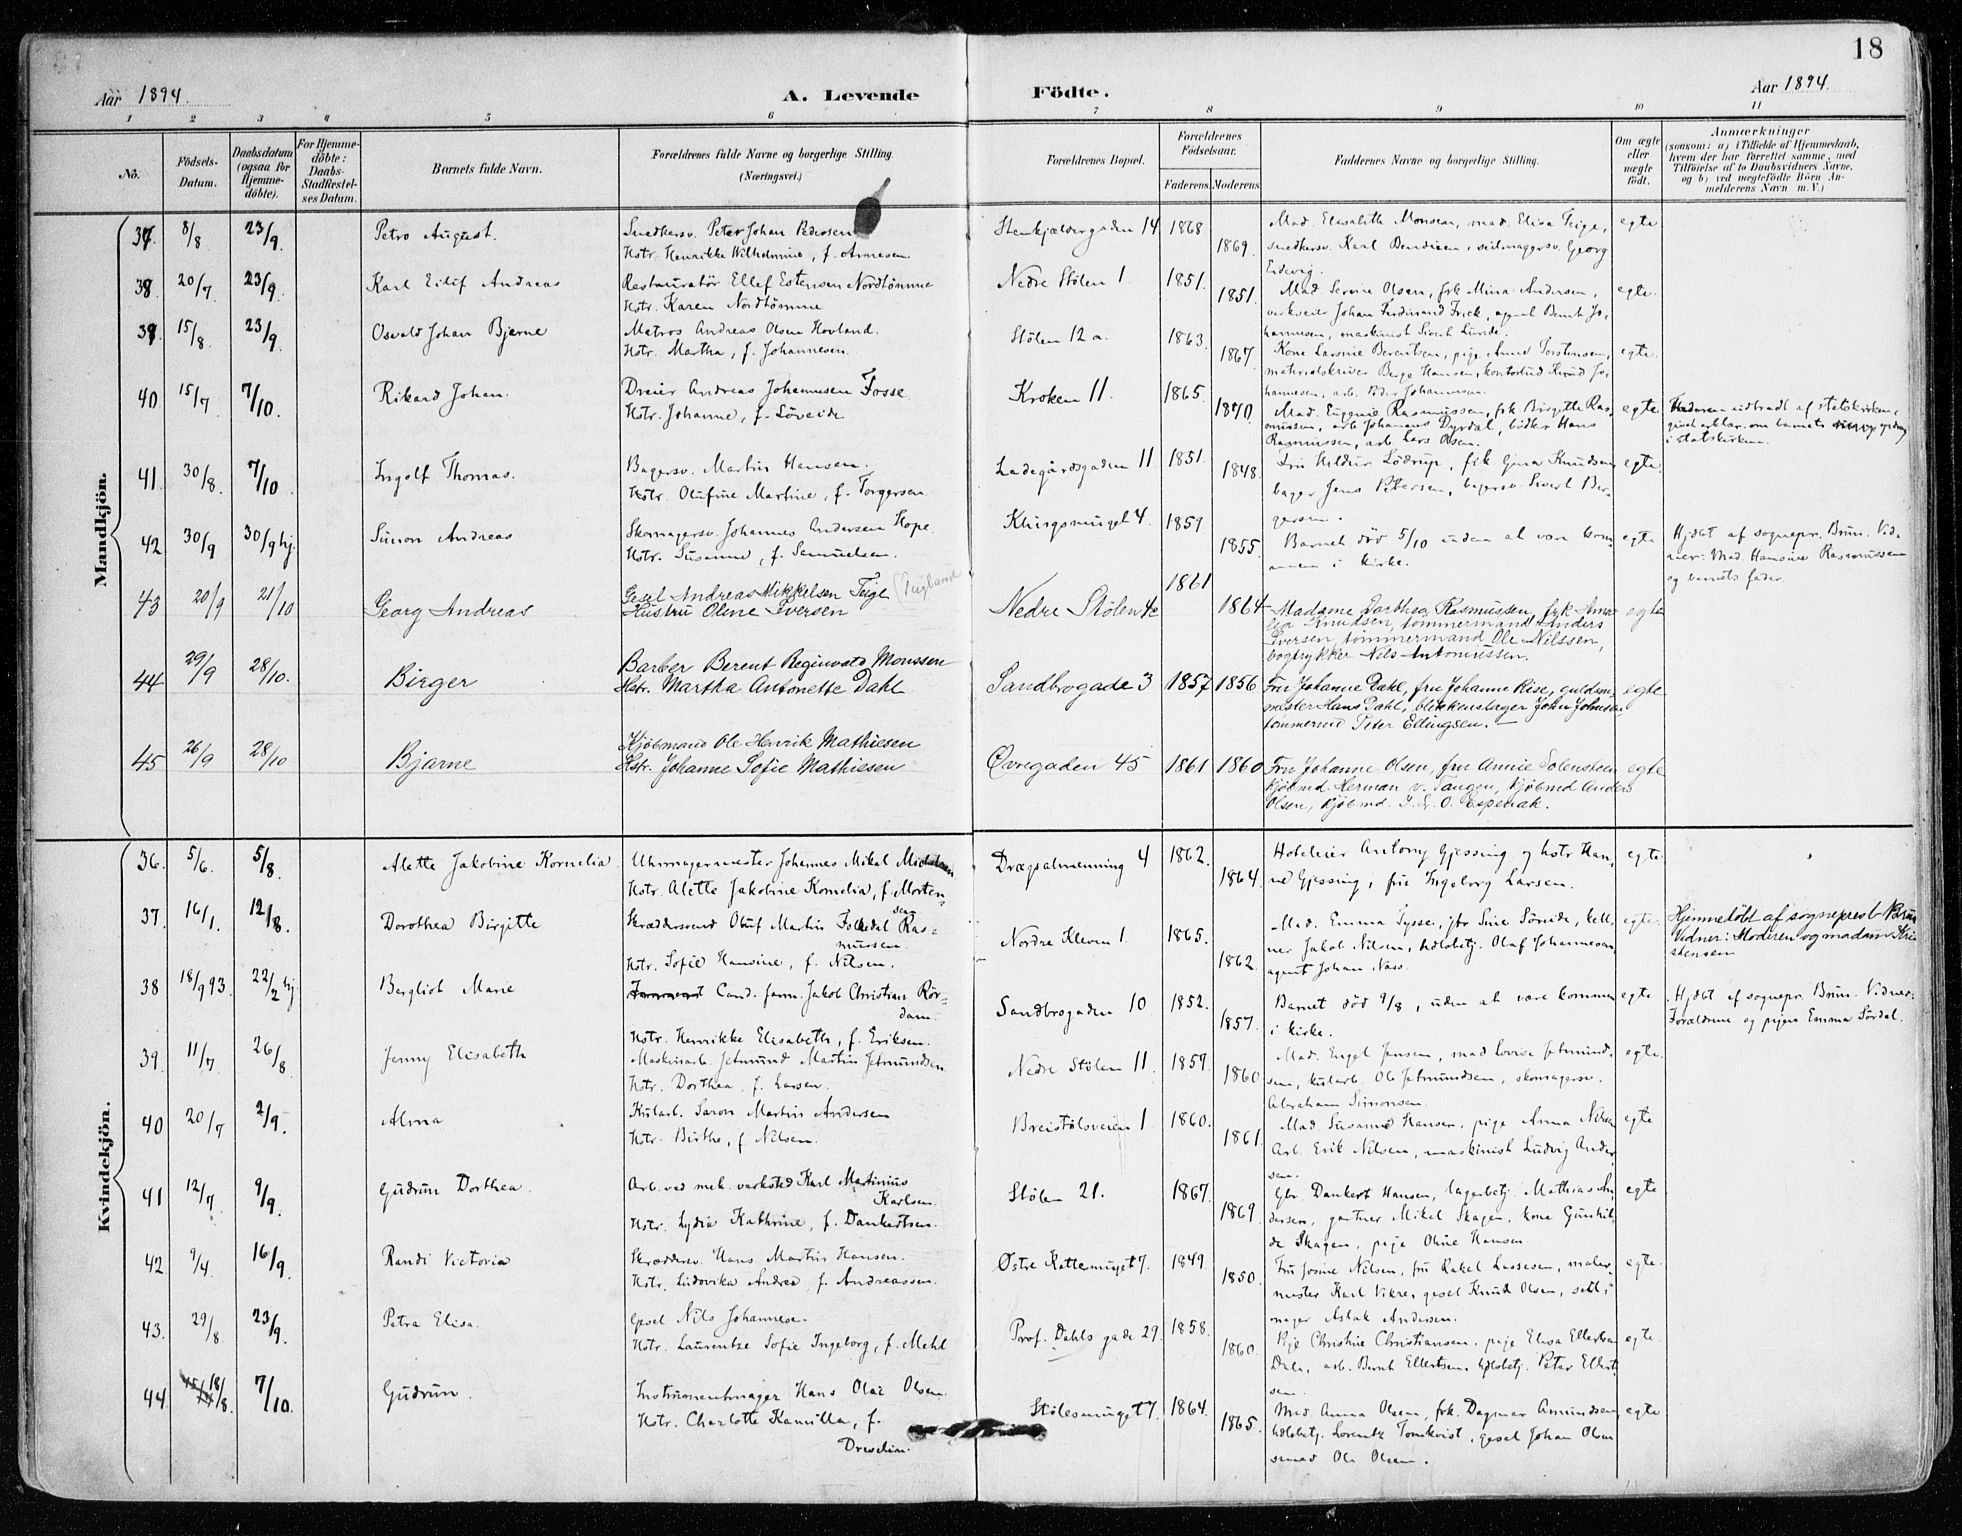 18
Aar 1894.
A. Levende
Födte.
Aar 1894.
1 2 3 4 5 6 7 8 9 10 11
No.
Födsels-
Datum.
Daabsdatum
(ogsaa for
Hjemme-
döbte).
For Hjemme-
döbte:
Daabs-
Stadfæstel-
ses Datum.
Barnets fulde Navn.
Forældrenes fulde Navne og borgerlige Stilling.
(Næringsvei.)
Forældrenes Bopæl.
Forældrenes
Födselsaar.
Faderens. Moderens.
Faddernes Navne og borgerlige Stilling.
Om ægte
eller
uægte
födt.
Anmærkninger
(saasom: a) i Tilfælde af Hjemmedaab,
hvem der har forrettet samme, med
Tilföielse af to Daabsvidners Navne,
og b) ved uægtefödte Börn An-
melderens Navn m. V.)
Mandkjön.
37. 8/8 23/9. Petro August. Snedkersv. Peter Johan Pedersen
Hstr. Henrikke Wilhelmine, f. Arnesen.
Stenkjældergaden 14 1868 1869.
Mad. Elisabeth Monsen, mad. Elisa Teige,
snedkersv. Karl Bendixen, seilmagersv. Georg
egte
38 20/7 23/9. Karl Eilif Andreas Restauratør Ellef Estensen Nordtömme
Hstr. Karen Nordtömme
Nedre Stölen 1 1851. 1851.
Mad. Serine Olsen, frk Mina Andersen,
Johan Ferdinand Frick, Bernt Jo-
hannesen, maskinist Sivert Lunde.
egte.
39 15/8. 23/9. Osvald Johan Bjarne Matros Andreas Olsen Hovland.
Hstr. Martha, f. Johannesen.
Stölen 12 a. 1863. 1867.
Kone Larsine Berentsen, pige Anne Torstensen,
materialskriver Berge Hansen, kontorbud Knud Jo-
hannesen, arb. Peder Johannesen.
egte.
40 15/7 7/10. Rikard Johan. Dreier Andreas Johannesen Fosse
Hstr. Johanne, f. Löveide
Kroken 11. 1865. 1870.
Mad. Eugenie Rasmussen, frk. Birgitte Ras-
mussen, arb Johannes Dyrdal, bödker Hans
Rasmussen, arb Lars Olsen.
egte
Faderen udtraadt af statskirken,
om barnets
i statskirken.
41. 30/8. 7/10 Ingolf Thomas. Bagersv. Martin Hansen.
Hstr. Olufine Martine, f. Torgersen
Ladegårdsgaden 11 1851. 1848.
Fru Hildur Lödrup, frk Gina Knudsen
bager Jens Petersen, bagersv. Sivert Ber-
gesen.
egte
42 30/9 30/9 hj. Simon Andreas Skomagersv. Johannes Andersen Hope.
Hstr. Susanne, f. Samuelsen.
Klingsmuget 4. 1859 1855.
Barnet död 5/10 uden at være kom-
men i kirke.
egte
Hjdöt af sognepr. Brun. Vid-
ner: Mad. Hansine Rasmussen
og barnets fader.
43 20/9 21/10 Georg Andreas Gesel Andreas Mikkelsen Teige (Teigland
Hustru Oline Iversen
Nedre Stölen 4c 1861 1864
Madame Dorthea Rasmussen, frk Ama-
lia Knudsen, tømmermand Anders
Iversen, tømmermand Ole Nilssen,
bogtrykker Nils Antoniussen.
egte
44 29/9 28/10. Birger Barber Berent Reginvald Monssen
Hstr. Martha Antonette Dahl
Sandbrogade 3 1857 1856
Fru Johanne Dahl, fru Johanne Rise, guldsm.
mester Hans Dahl, blikkenslager John Johnsen,
tömmermd Peter Ellingsen. —
egte
45 26/9 28/10 Bjarne Kjöbmand Ole Henrik Mathiesen
Hstr. Johanne Sofie Mathiesen
Øvregaden 45 1861 1860
Fru Johanne Olsen, fru Annie Solensteen
kjöbmd. Herman v. Tangen, kjöbmd Anders
Olsen, kjöbmd. I. L. O. Espenak.
egte
Kvindekjön.
36. 5/6. 5/8. Alette Jakobine Kornelia Uhrmagermester Johannes Mikal
Hstr. Alette Jakobine Kornelia, f. Morten-
sen
Drægsalmenning 4 1862. 1864.
Hoteleier Antony Gjessing og hstr Han-
ne Gjessing, fru Ingeborg Larsen.
egte.
37. 16/1. 12/8. Dorothea Birgitte Skræddersvend Oluf Martin Folkedal Ras-
mussen.
Hstr. Sofie Hansine, f. Nilsen.
Nordre Kleven 1. 1865. 1862.
Mad. Emma Tysse, jfr Sine Söreide, kell-
ner Jakob Nilsen, hdlsbetj. Olaf Johannesen,
agent Johan Næss.
egte.
Hjemmedöbt af sogneprest Brun
Vidner: Moderen og madam Kri-
stensen
38 18/9 93. 22/2 hj Bergliot Marie Cand. farm. Jakob Christian Rör-
dam.
Hstr. Henrikke Elisabeth, f. Eriksen.
Sandbrogaden 10 1852. 1857.
Barnet död 9/8, uden at være kommen
i kirke.
egte
Hjdöt af sognepr. Brun. Vidner:
Forældrene og pigen Emma Sördal.
39 11/7 26/8. Jenny Elisabeth Maskinarb. Jetmund Martin Jetmundsen
Hstr. Dorthea, f. Larsen.
Nedre Stölen 11. 1859. 1860
Mad. Engel Jensen, mad Lovise Jetmund-
sen, kularb. Ole Jetmundsen, skomagersv.
Abraham Simonsen.
egte.
40 20/7 2/9. Alma Kularb. Saron Martin Andersen
Hstr. Birthe, f. Nilsen.
Breistölsveien 1 1860. 1861.
Mad. Susanne Hansen, pige Anna Nilsen
Arb. Erik Nilsen, maskinist Ludvig Ander-
sen.
egte
41 12/7 9/9. Gudrun Dorthea. Arb. ved mek. verksted Karl Martinius
Karlsen.
Hstr. Lydia Kathrine, f. Dankertsen.
Stölen 21. 1867. 1869.
Gbr. Dankert Hansen, lagerbetj. Mathias An-
dersen, gartner Mikel Skagen, kone Gunhil-
de Skagen, pige Oline Hansen.
egte
42 9/4. 16/9. Randi Victoria Skræddersv. Hans Martin Hansen.
Hstr. Ludovika Andrea, f. Andreassen.
Østre Kattemuget 7. 1849. 1850.
Fru Josine Nilsen, fru Rakel Lassesen, maler-
mester Karl Vikre, gesel Knut Olsen,
mager Aslak Andersen.
egte.
43. 29/8. 23/9. Petra Elisa. Gesel Nils Johannesen.
Hstr. Laurentze Sofie Ingeborg, f. Mehl
Prof. Dahls gade 29. 1858. 1860.
Pige Christine Christiansen, pige Elisa Ellertsen
Dale, arb. Bernt Ellertsen, hdlsbetj. Peter Ellert-
sen.
egte.
44. 18/8. 7/10. Gudrun. Instrumentmager Hans Olai Olsen
Hstr. Charlotte Kamilla, f.
Dreselin.
Stölesmuget 7. 1864. 1865.
Mad. Anna Olsen, frk. Dagmar Amundsen,
hdlsbetj. Lorentz Tornkvist, gesel Johan Olsen
smed Ole Olsen.
egte